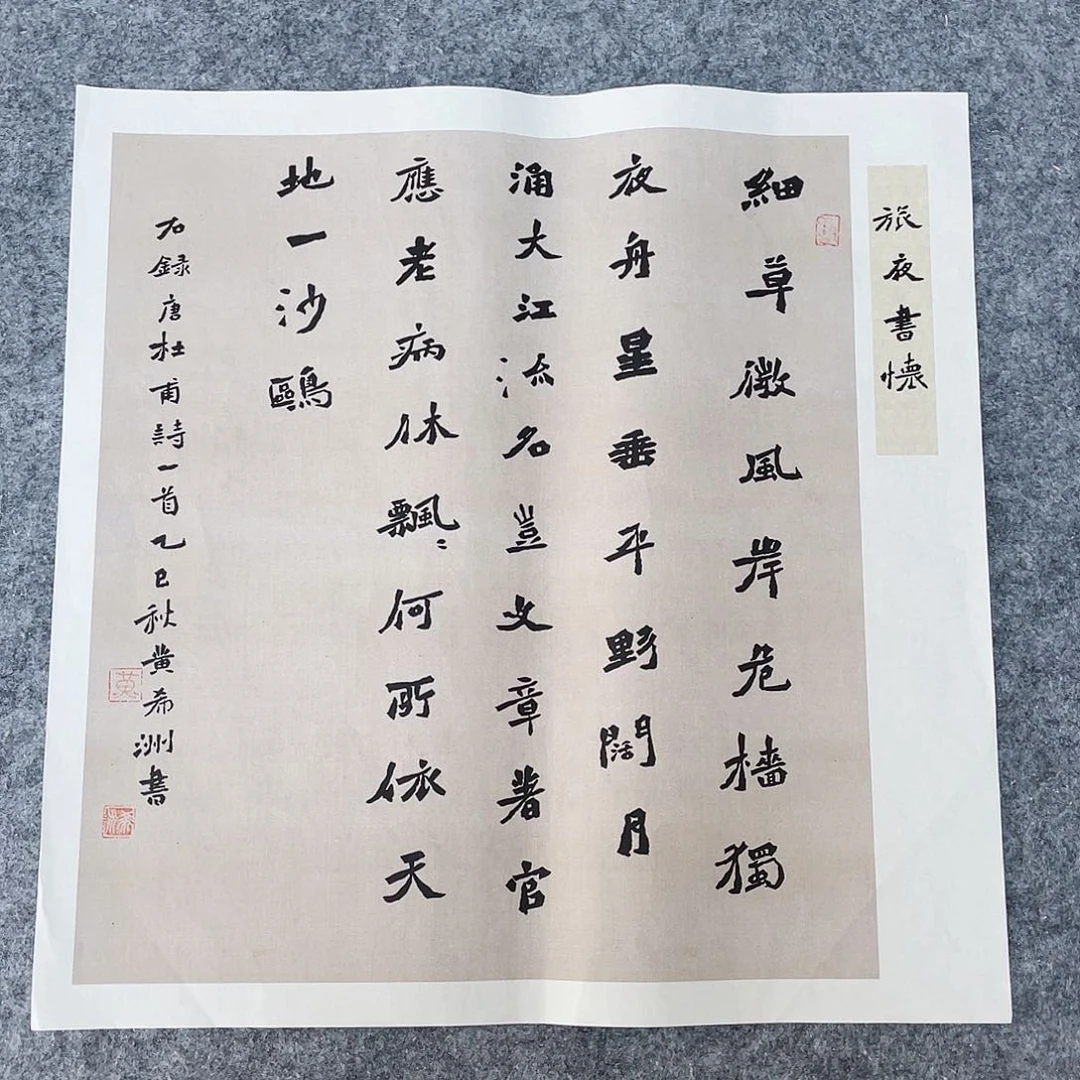 旅夜書懷
細草微風岸危檣獨
夜舟星垂平野闊月
涌大江流名豈文章著官
應老病休飄〻何所依天
地一沙鷗
右録唐杜甫詩一首乙巳秋黄希洲書
黄